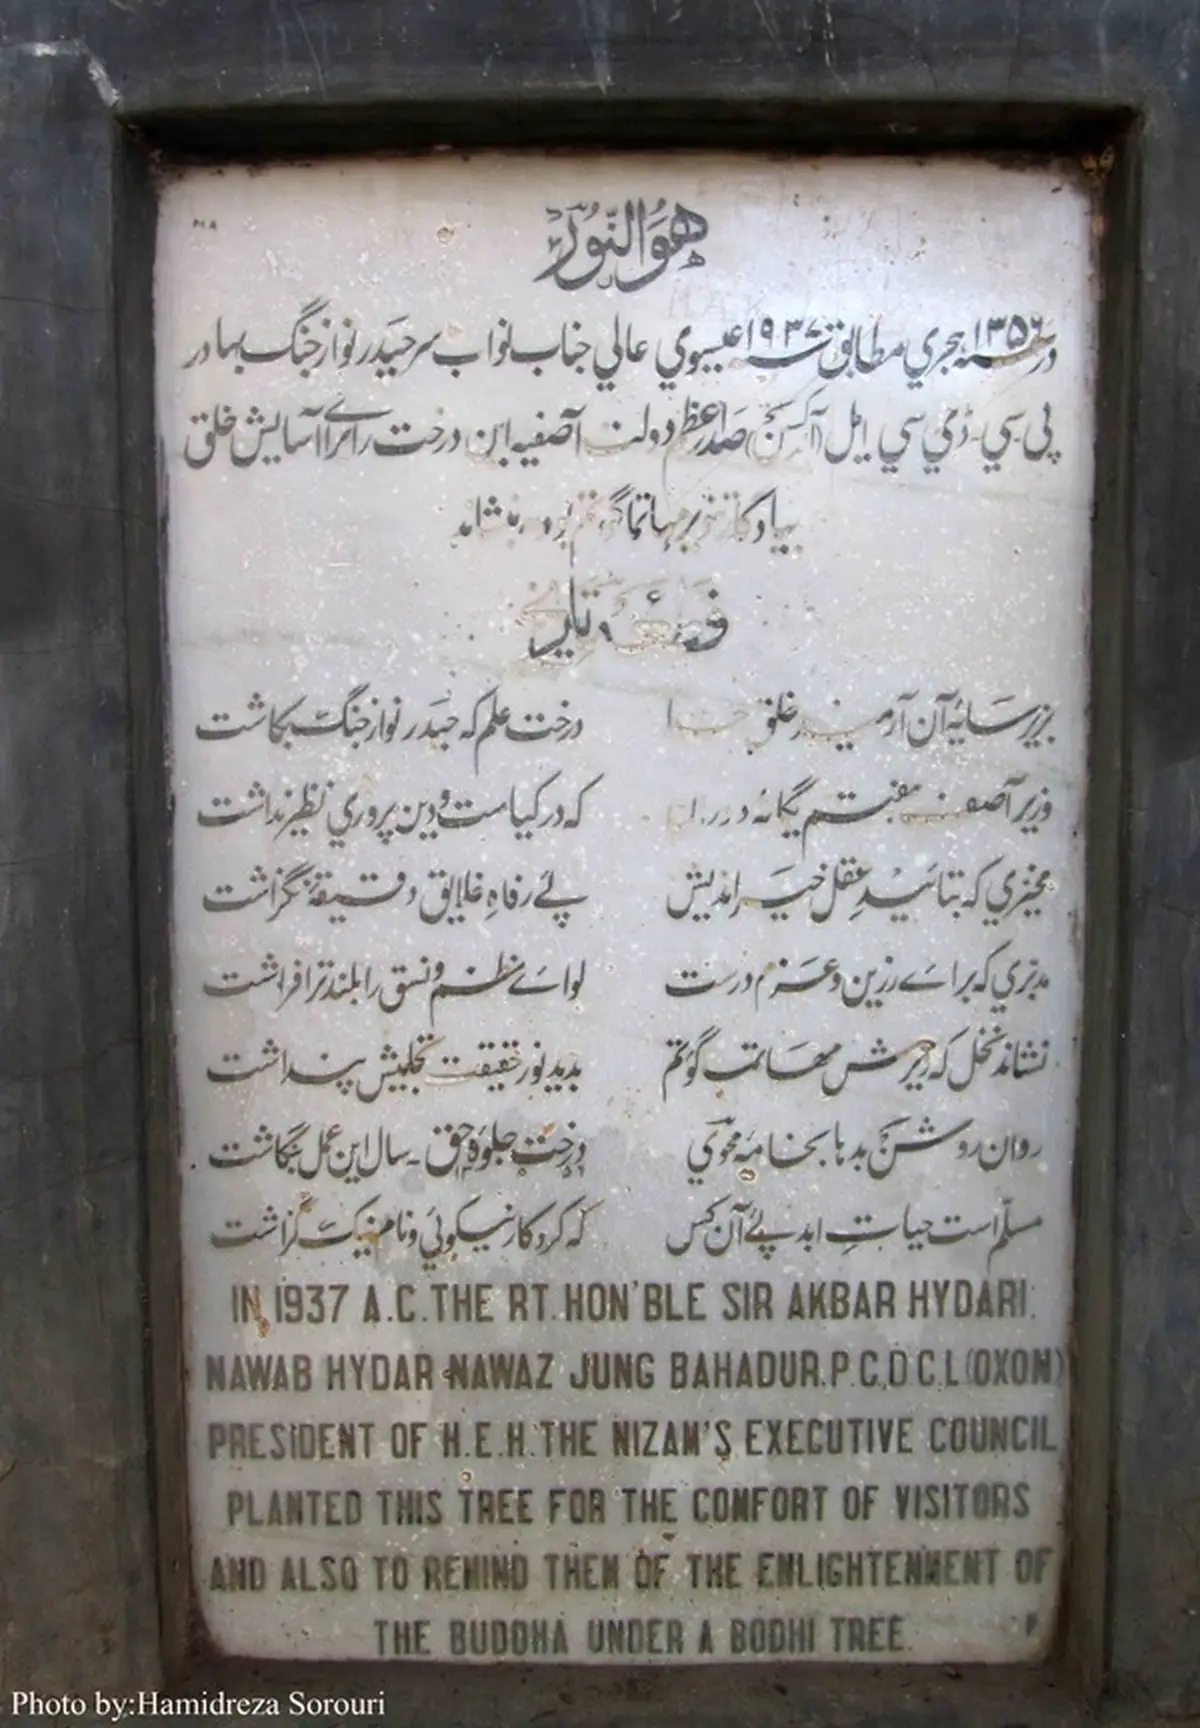 هُوَ النُّور
در سنه ۱۳۵۶ هجري مطابق سنه ۱۹۳۷ عيسوي عالي جناب نواب سر حيدر نواز جنگ بهادر
پي سي ـ ڈي سي ايل (آکسن) صدراعظم دولت آصفيه اين درخت را براے آسايش خلق
بيادگار مهاتما گوتم
قطعۂ تاريخ
بزير سايۂ آن آرمند خلق خدا درخت علم که حيدر نواز جنگ بکاشت
وزير آصف هفتم يگانۂ دوران که در کياست و دين پروري نظير نداشت
مخيري که بتائيدِ عقل خير انديش پئے رفاهِ خلايق دقيقۂ نگزاشت
مدبري که براے رزين و عزم درست لواے نظم و نسق را بلندتر افراشت
نشاند نخل که زيرش مهاتما گوتم بديد نور حقيقت تجليش پنداشت
روان روشن بدها بخامۂ محوي درختِ جلوۂ حق ـ سال اين عمل بنگاشت
مسلّم است حياتِ ابد پئے آن کس که کرد کار نيکوئي و نام نيک گزاشت
IN 1937 A.C. THE RT. HON'BLE SIR AKBAR HYDARI:
NAWAB HYDAR NAWAZ JUNG BAHADUR. P.C., D.C.L (OXON)
PRESIDENT OF H.E.H. THE NIZAM'S EXECUTIVE COUNCIL
PLANTED THIS TREE FOR THE COMFORT OF VISITORS
AND ALSO TO REMIND THEM OF THE ENLIGHTENMENT OF
THE BUDDHA UNDER A BODHI TREE.
Photo by:Hamidreza Sorouri